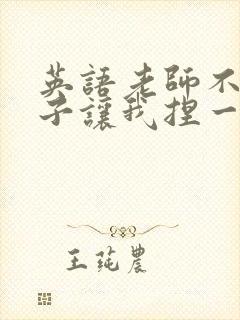 英語老師不
子讓我捏一
王莼農